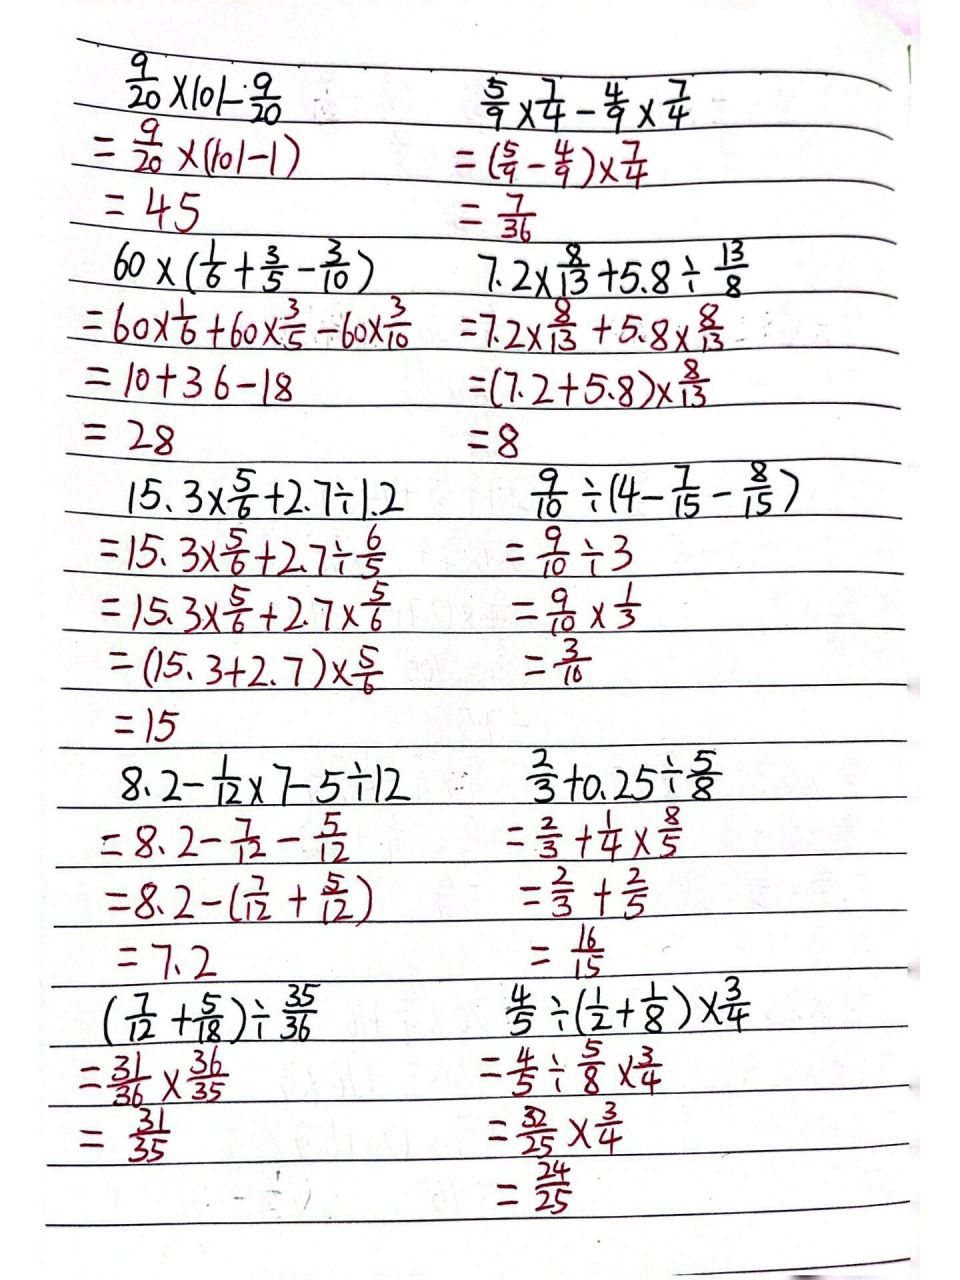 9/20 ×101-9/20
= 9/20 ×(101-1)
= 45
5/9 × 7/4 - 4/9 × 7/4
= (5/9 - 4/9)× 7/4
= 7/36
60×(1/6 + 3/5 - 3/10)
=60×1/6+60×3/5-60×3/10
=10+36-18
= 28
7.2×8/13+5.8÷13/8
=7.2×8/13+5.8×8/13
=(7.2+5.8)×8/13
=8
15.3×5/6+2.7÷1.2
=15.3×5/6+2.7÷6/5
=15.3×5/6+2.7×5/6
=(15.3+2.7)×5/6
=15
9/10÷(4-7/15-8/15)
= 9/10÷3
= 9/10×1/3
= 3/10
8.2-1/12×7-5÷12
=8.2-7/12-5/12
=8.2-(7/12+5/12)
=7.2
2/3+0.25÷5/8
=2/3+1/4×8/5
=2/3+2/5
=16/15
(7/12+5/18)÷35/36
=31/36×36/35
=31/35
4/5÷(1/2+1/8)×3/4
=4/5÷5/8×3/4
=32/25×3/4
=24/25